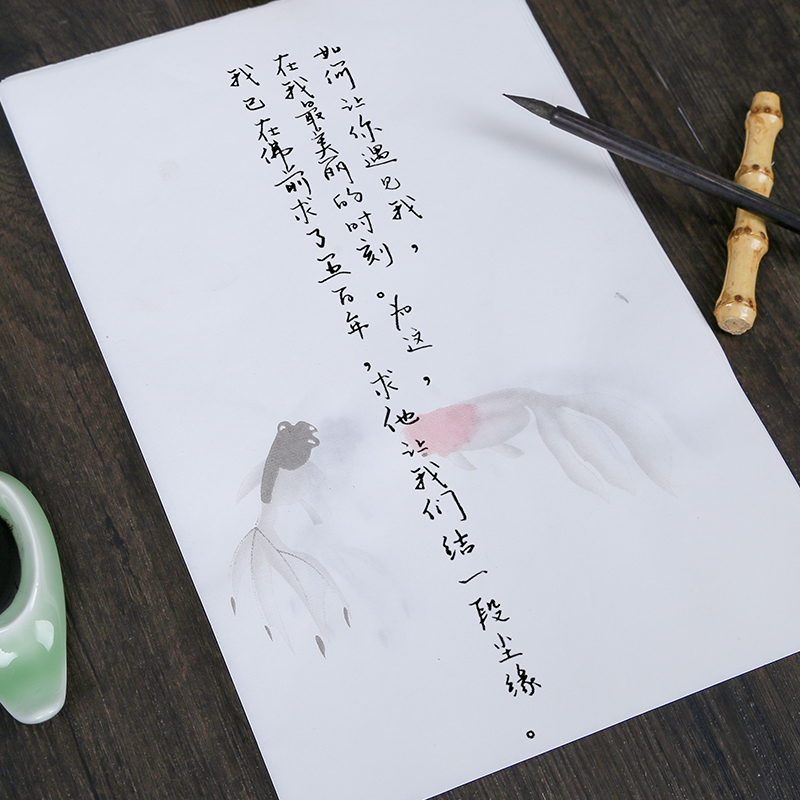 如何让你遇见我，
在我最美丽的时刻。为这，
我已在佛前求了五百年，求他让我们结一段尘缘。